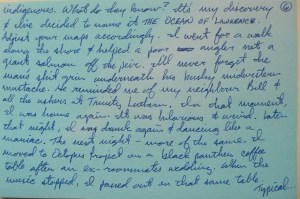 indigenous. What do they know? It's my discovery 6
& I've decided to name it THE OCEAN OF LAWRENCE.
Adjust your maps accordingly. I went for a walk
along the shore & helped a poor angler net a
giant salmon off the pier. I'll never forget the
mans grin underneath his bushy midwestern
mustache. He reminded me of my neighbor Bill &
all the ushers at Trinity Lutheran. In that moment,
I was home again. It was hilarious & weird. Later
that night, I got drunk again & dancing like a
maniac. The next night - more of the same. I
moved to Octopus Project on a black panther coffee
table after an ex-roommates wedding. When the
music stopped, I passed out on that same table.
Typical...